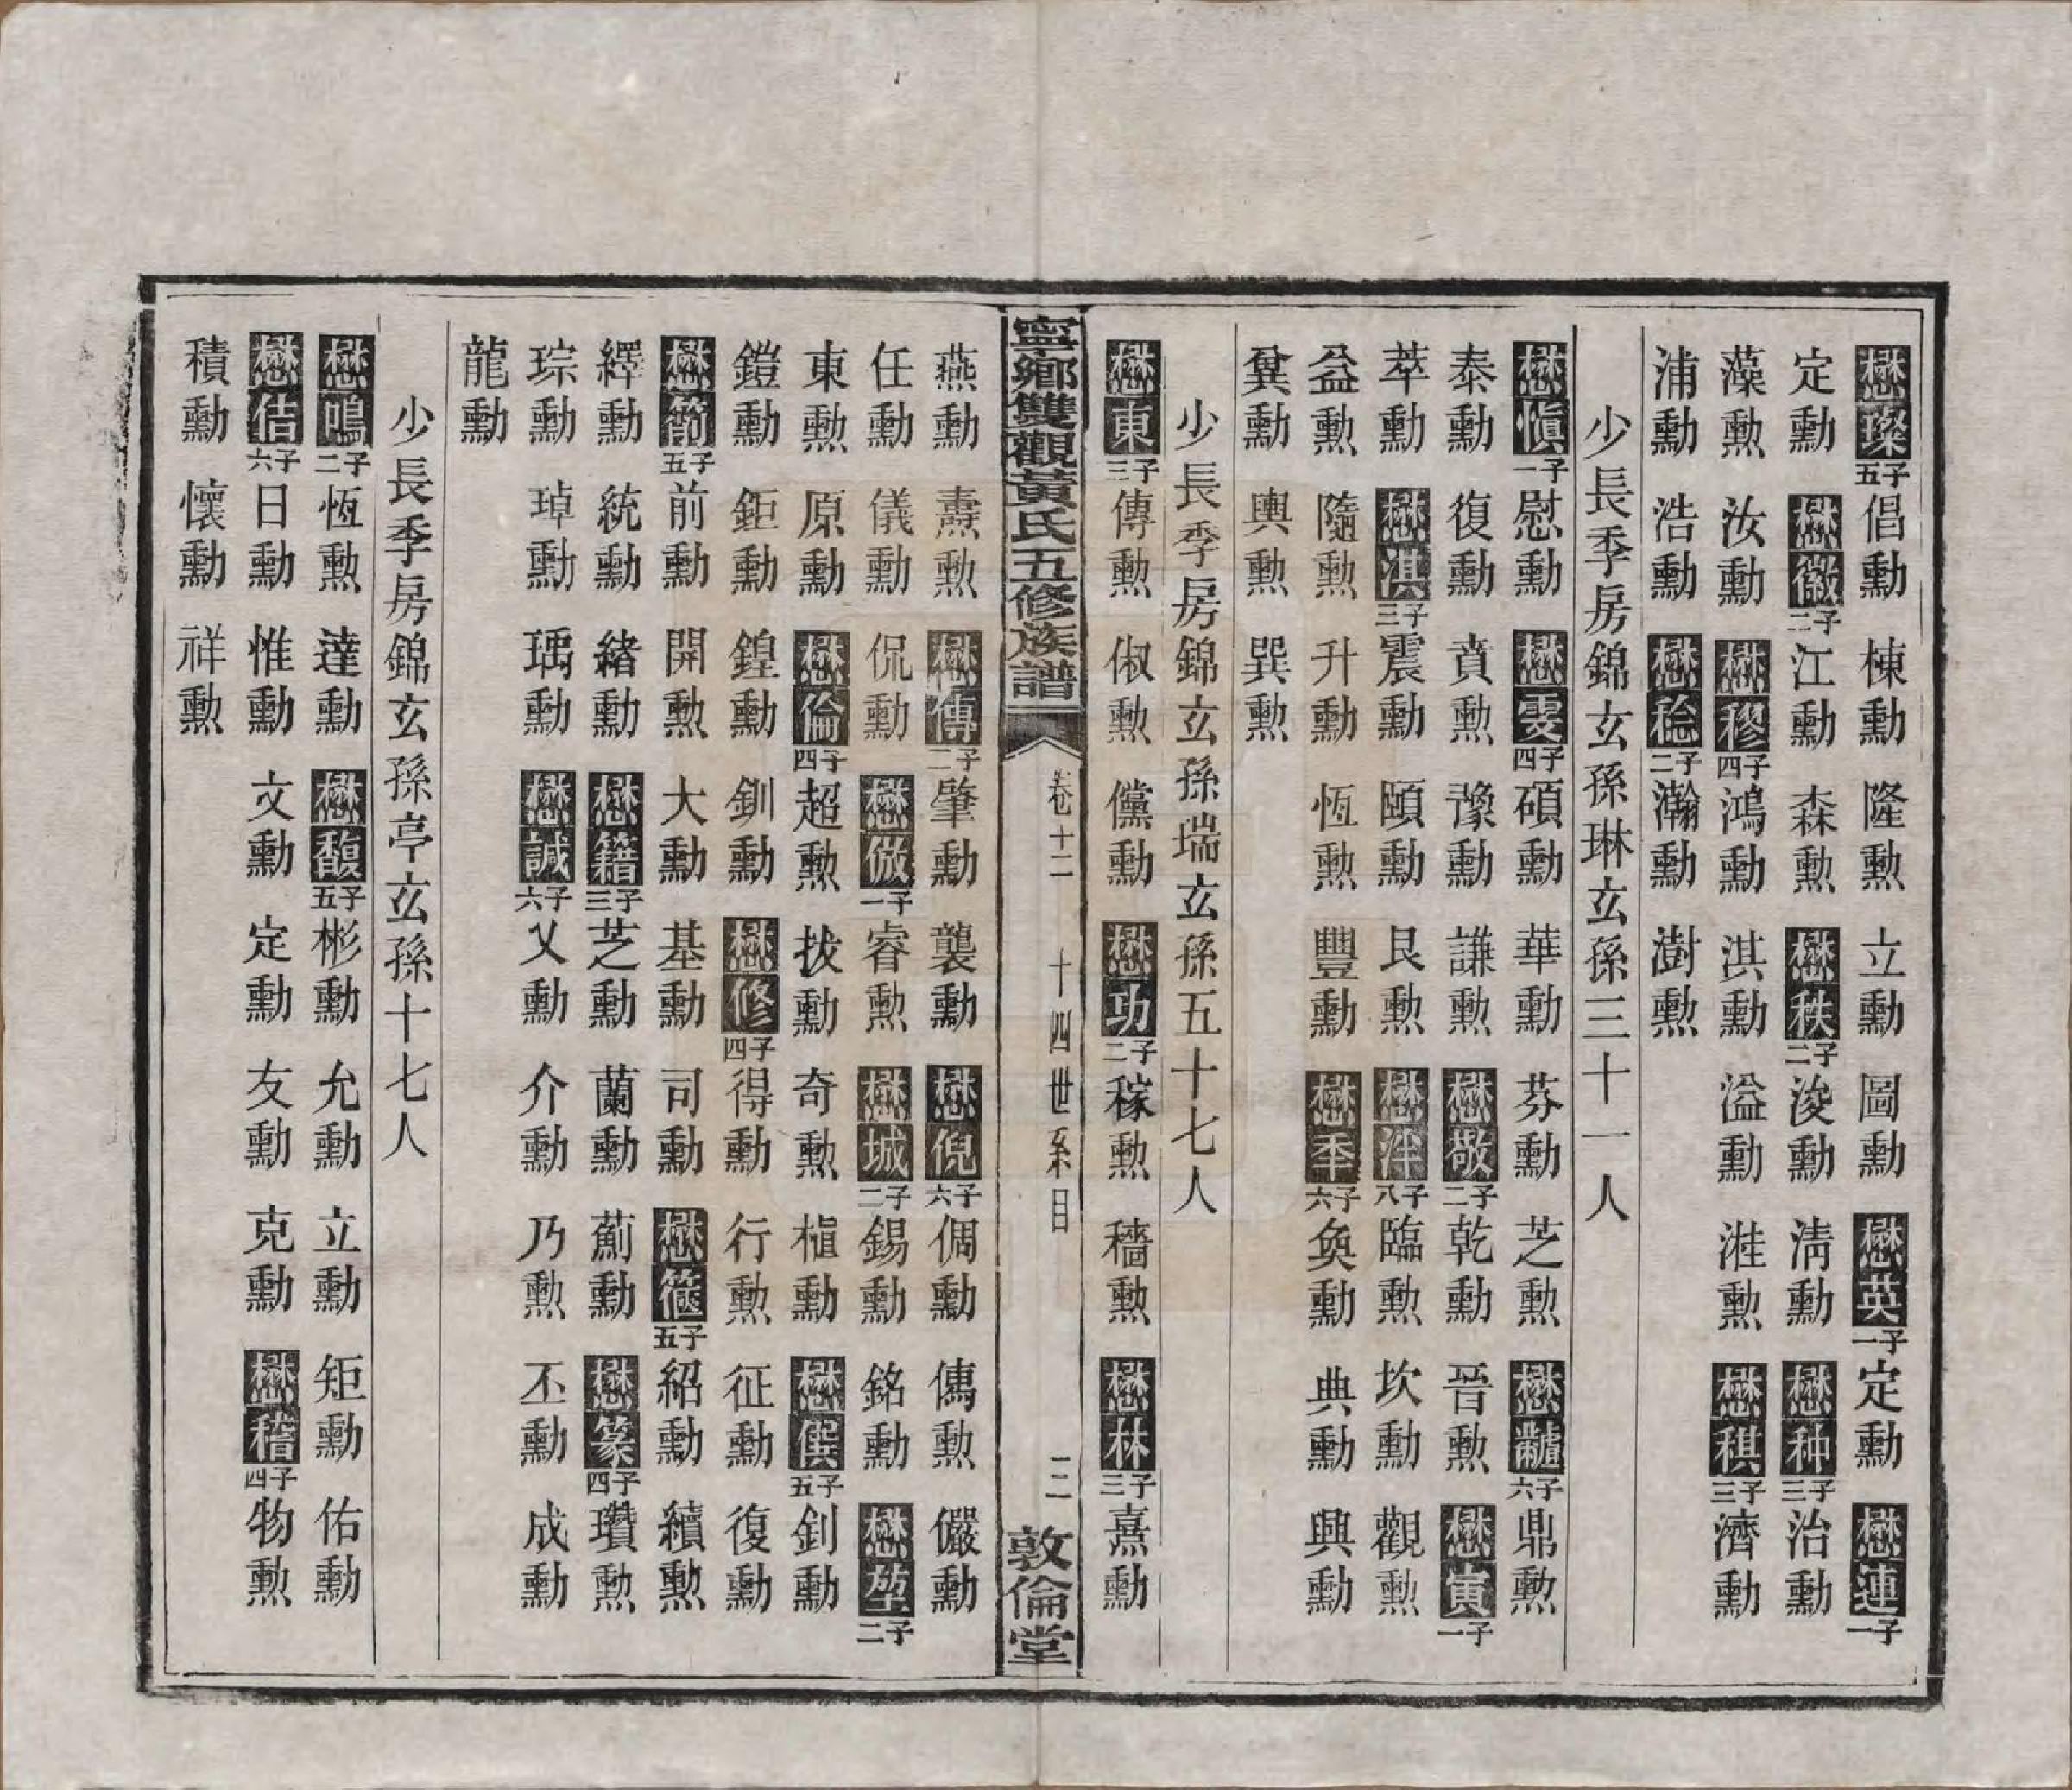 懋璨五子 倡勳 棟勳 隆勳 立勳 圖勳 懋英一子 定勳 懋蓮一子
定勳 懋徽二子 江勳 森勳 懋秩二子 浚勳 清勳 懋种三子 治勳
藻勳 汝勳 懋穆四子 鴻勳 淇勳 溢勳 溎勳 懋稘三子 濟勳
浦勳 浩勳 懋稔二子 瀚勳 澍勳
少長季房錦玄孫琳玄孫三十一人
懋愼一子 慰勳 懋雯四子 碩勳 華勳 芬勳 芝勳 懋 六子 鼎勳
泰勳 復勳 賁勳 豫勳 謙勳 懋敬二子 乾勳 晉勳 懋寅一子
萃勳 懋淇三子 震勳 頤勳 艮勳 懋泮八子 臨勳 坎勳 觀勳
益勳 隨勳 升勳 恆勳 豐勳 懋季六子 奐勳 典勳 興勳
冀勳 輿勳 巽勳
少長季房錦玄孫瑞玄孫五十七人
懋東三子 傳勳 俶勳 儻勳 懋功二子 稼勳 穡勳 懋林三子 熹勳
寧鄉雙觀黃氏五修族譜 卷十二 十四世系目 三 敦倫堂
燕勳 燾勳 懋傅二子 肇勳 襲勳 懋倪六子 倜勳 儁勳 儼勳
任勳 儀勳 侃勳 懋倣一子 睿勳 懋城二子 錫勳 銘勳 懋堃二子
東勳 原勳 懋倫四子 超勳 拔勳 奇勳 植勳 懋僎五子 釗勳
鎧勳 鉅勳 鍠勳 釧勳 懋修四子 得勳 行勳 征勳 復勳
懋節五子 前勳 開勳 大勳 基勳 司勳 懋 五子 紹勳 續勳
繹勳 統勳 緒勳 懋籍三子 芝勳 蘭勳 薊勳 懋篆四子 瓚勳
琮勳 琸勳 瑀勳 懋誠六子 乂勳 介勳 乃勳 丕勳 成勳
龍勳
少長季房錦玄孫亭玄孫十七人
懋鳴二子 恆勳 達勳 懋馥五子 彬勳 允勳 立勳 矩勳 佑勳
懋佶六子 日勳 惟勳 文勳 定勳 友勳 克勳 懋稽四子 物勳
積勳 懷勳 祥勳